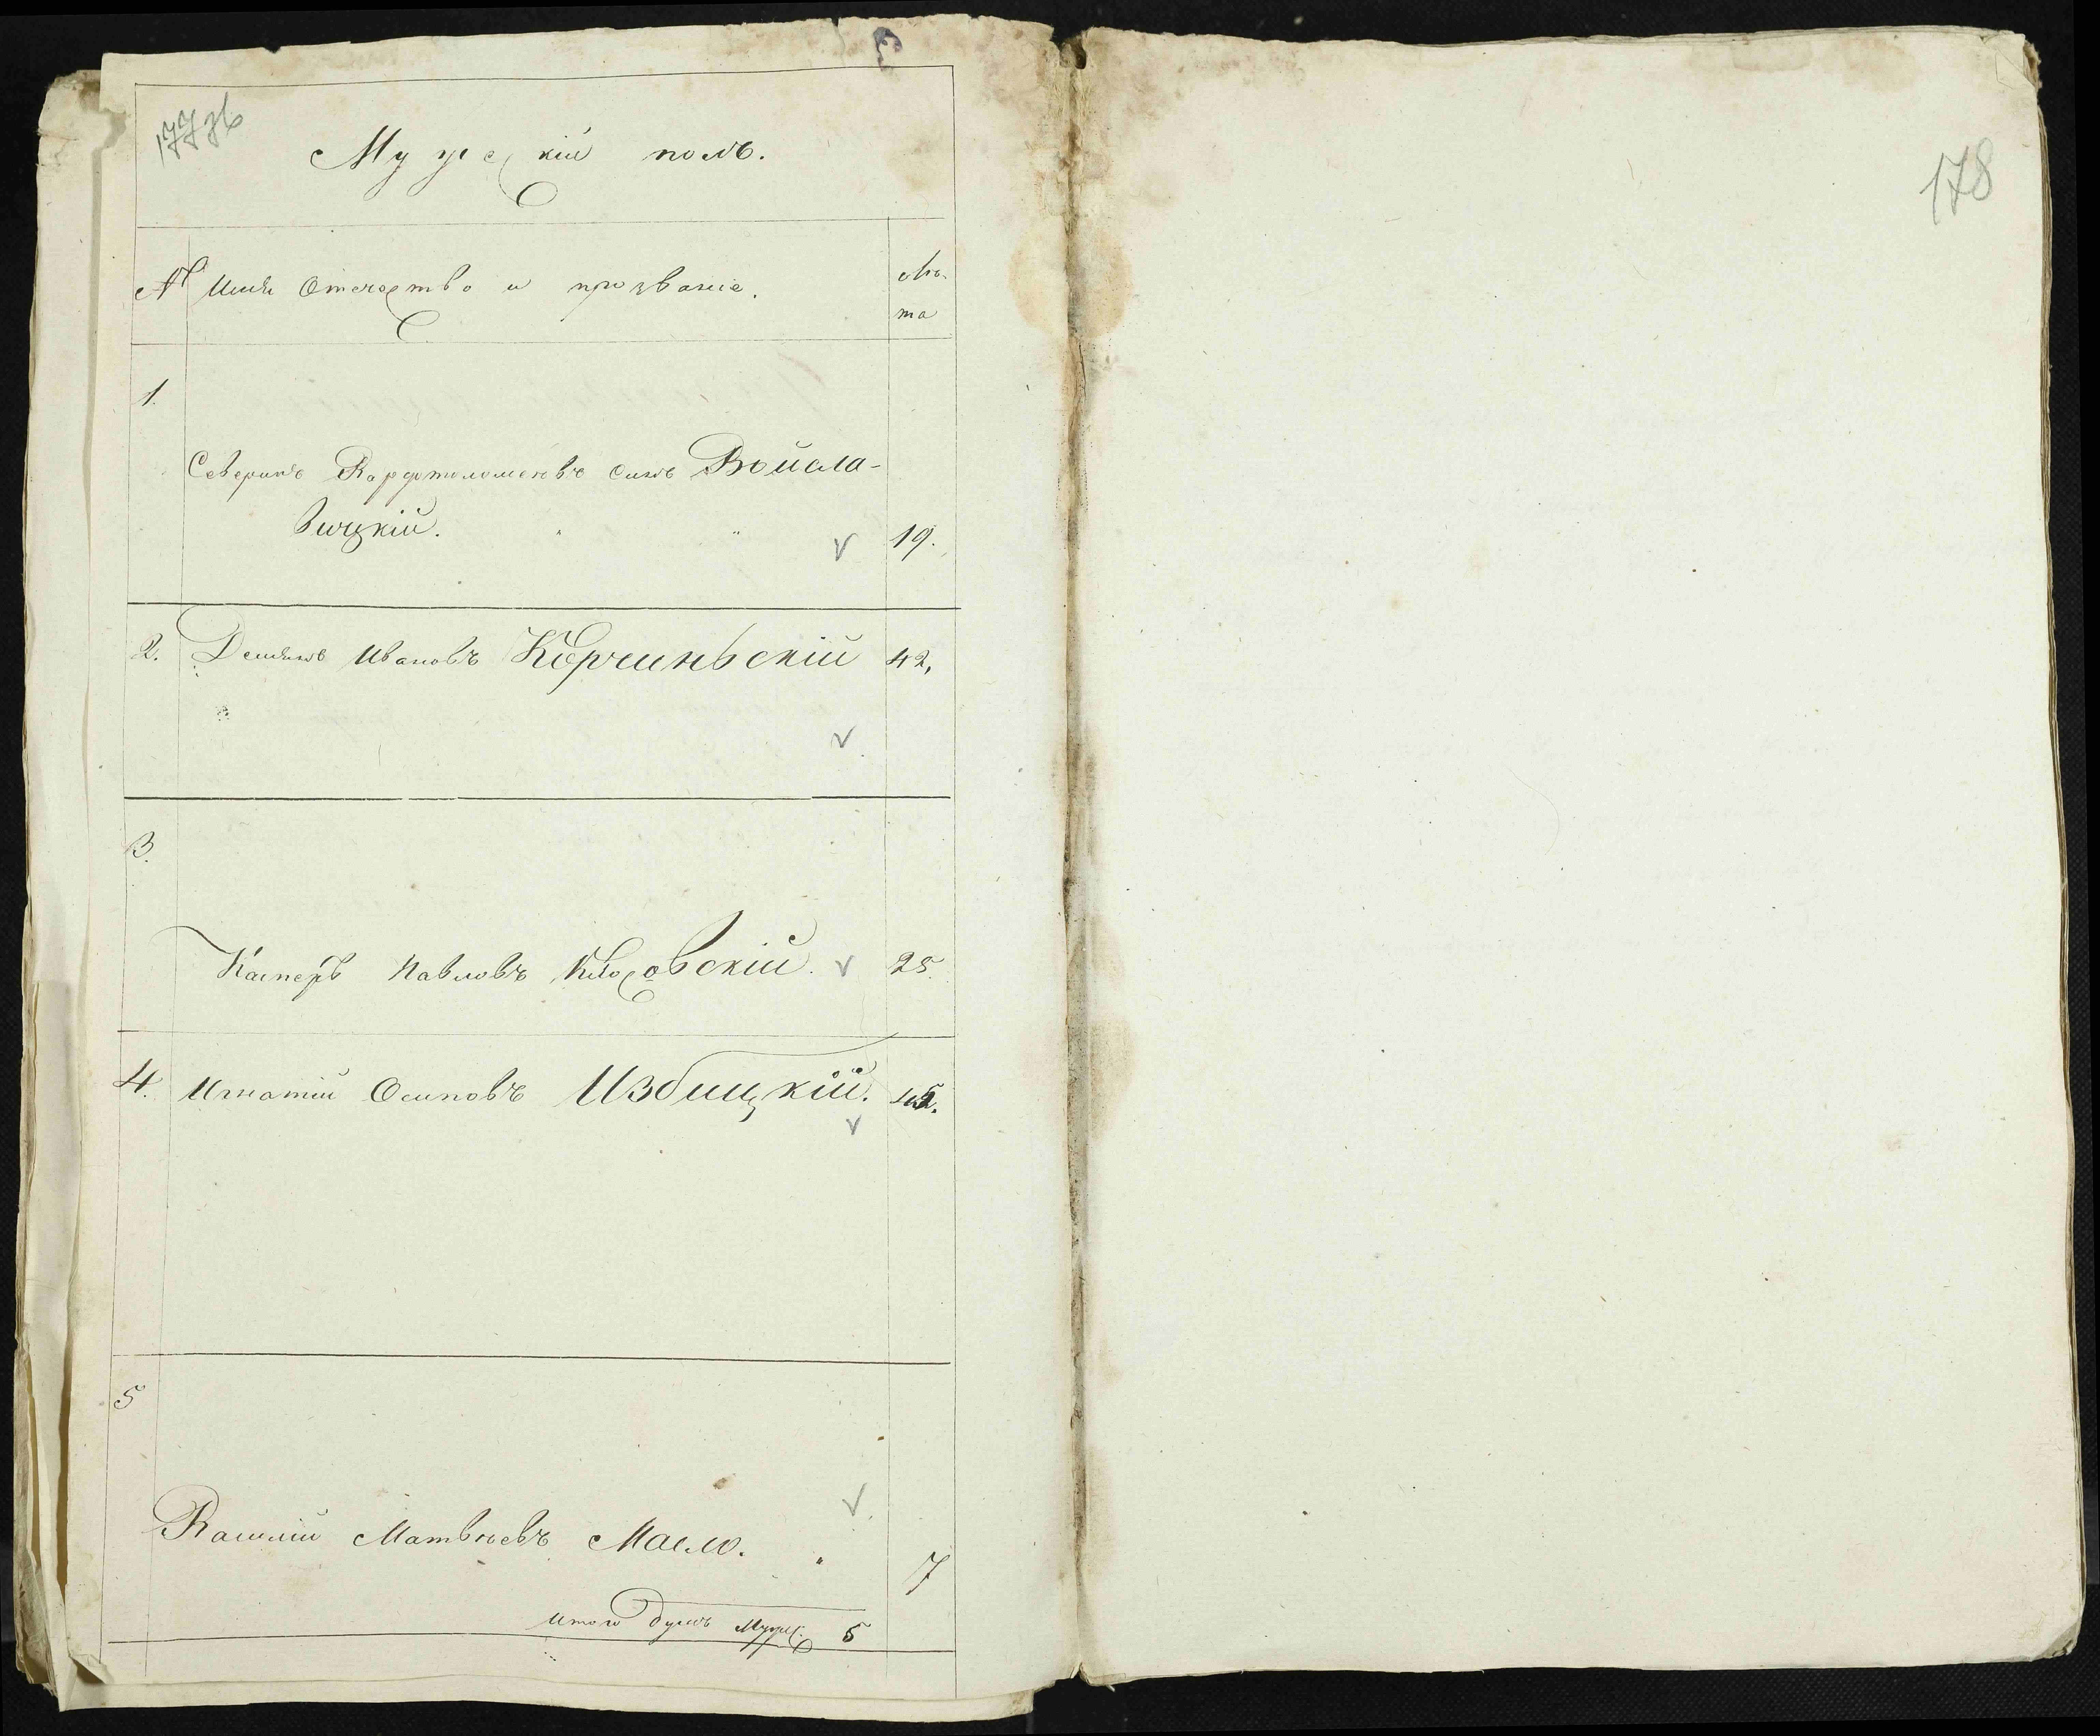 177зв
Мужескій полъ.
№ Имя Отечество и прозваніе. Лѣ-
та
1.
Северинъ Варфтоломеевъ сынъ Войсла-
вицкій. 19.
2. Демянъ Ивановъ Корчиньскій 42.
3.
Касперъ Павловъ Клосовскій. 25.
4. Игнатій Осиповъ Избицкій.
5
Василій Матвѣевъ Масло. 7
Итого душъ Мужес: 5
178